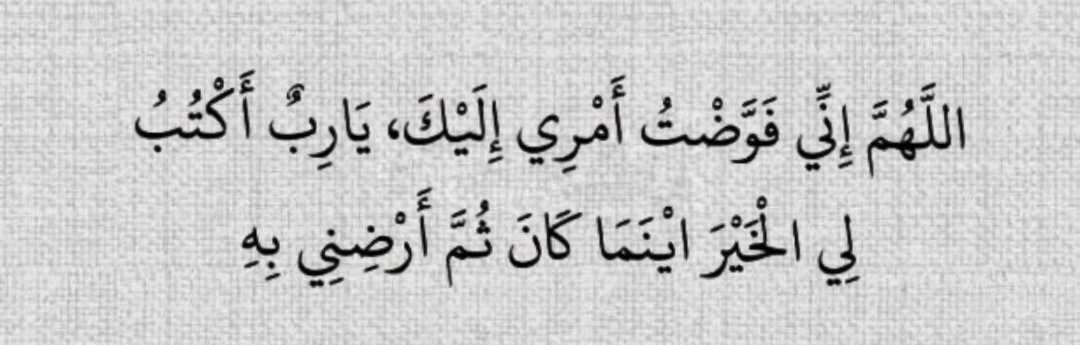 اللَّهُمَّ إِنِّي فَوَّضْتُ أَمْرِي إِلَيْكَ، يَارِبٌ أَكْتُبُ
لِي الْخَيْرَ ايْنَمَا كَانَ ثُمَّ أَرْضِنِي بِهِ